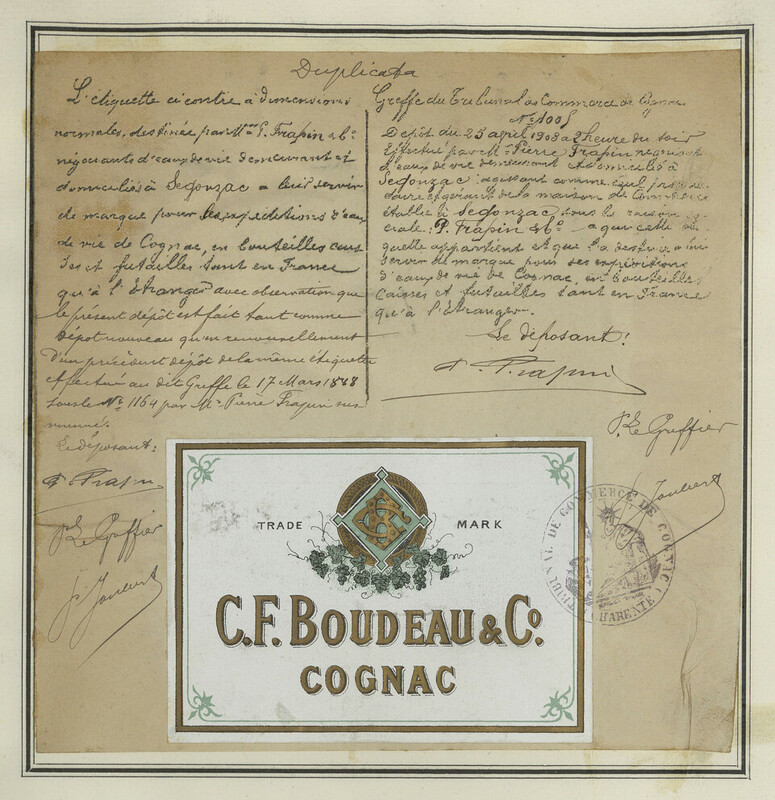 Duplicata
L'étiquette ci contre à dimensions
normales, destinée par Mrs P. Frapin & Co
négociants d'eaux de vie demeurant et
domiciliés à Segonzac a leur servir
de marque pour les expéditions d'eaux
de vie de Cognac, en bouteilles cais
ses et futailles tant en France
qu'à l'Etranger avec observation que
le présent dépôt est fait tant comme
dépôt nouveau qu'en renouvellement
d'un précédent dépôt de la même étiquette
effectué au dit Greffe le 17 Mars 1888
sous le No 1164 par Mr Pierre Frapin sus
nommé.
Le déposant:
P. Frapin
P. Le Greffier
J. Joubert
Greffe du Tribunal de Commerce de Cognac
No 1005
Dépôt du 23 avril 1908 a 2 heure du soir
Effectué par Mr Pierre Frapin négociant
d'eaux de vie demeurant et domicilié à
Segonzac agissant comme
et gérant de la maison de Commerce
établie à Segonzac sous la raison
ciale: P. Frapin & Co a qui cette
quette appartient et que la destine a lui
servir de marque pour ses expéditions
d'eaux de vie de Cognac en bouteilles
Caisses et futailles tant en France
qu'à l'Etranger.
Le déposant:
P. Frapin
P. Le Greffier
J. Joubert
TRIBUNAL DE COMMERCE DE COGNAC
CHARENTE
TRADE MARK
C.F. BOUDEAU & Co.
COGNAC